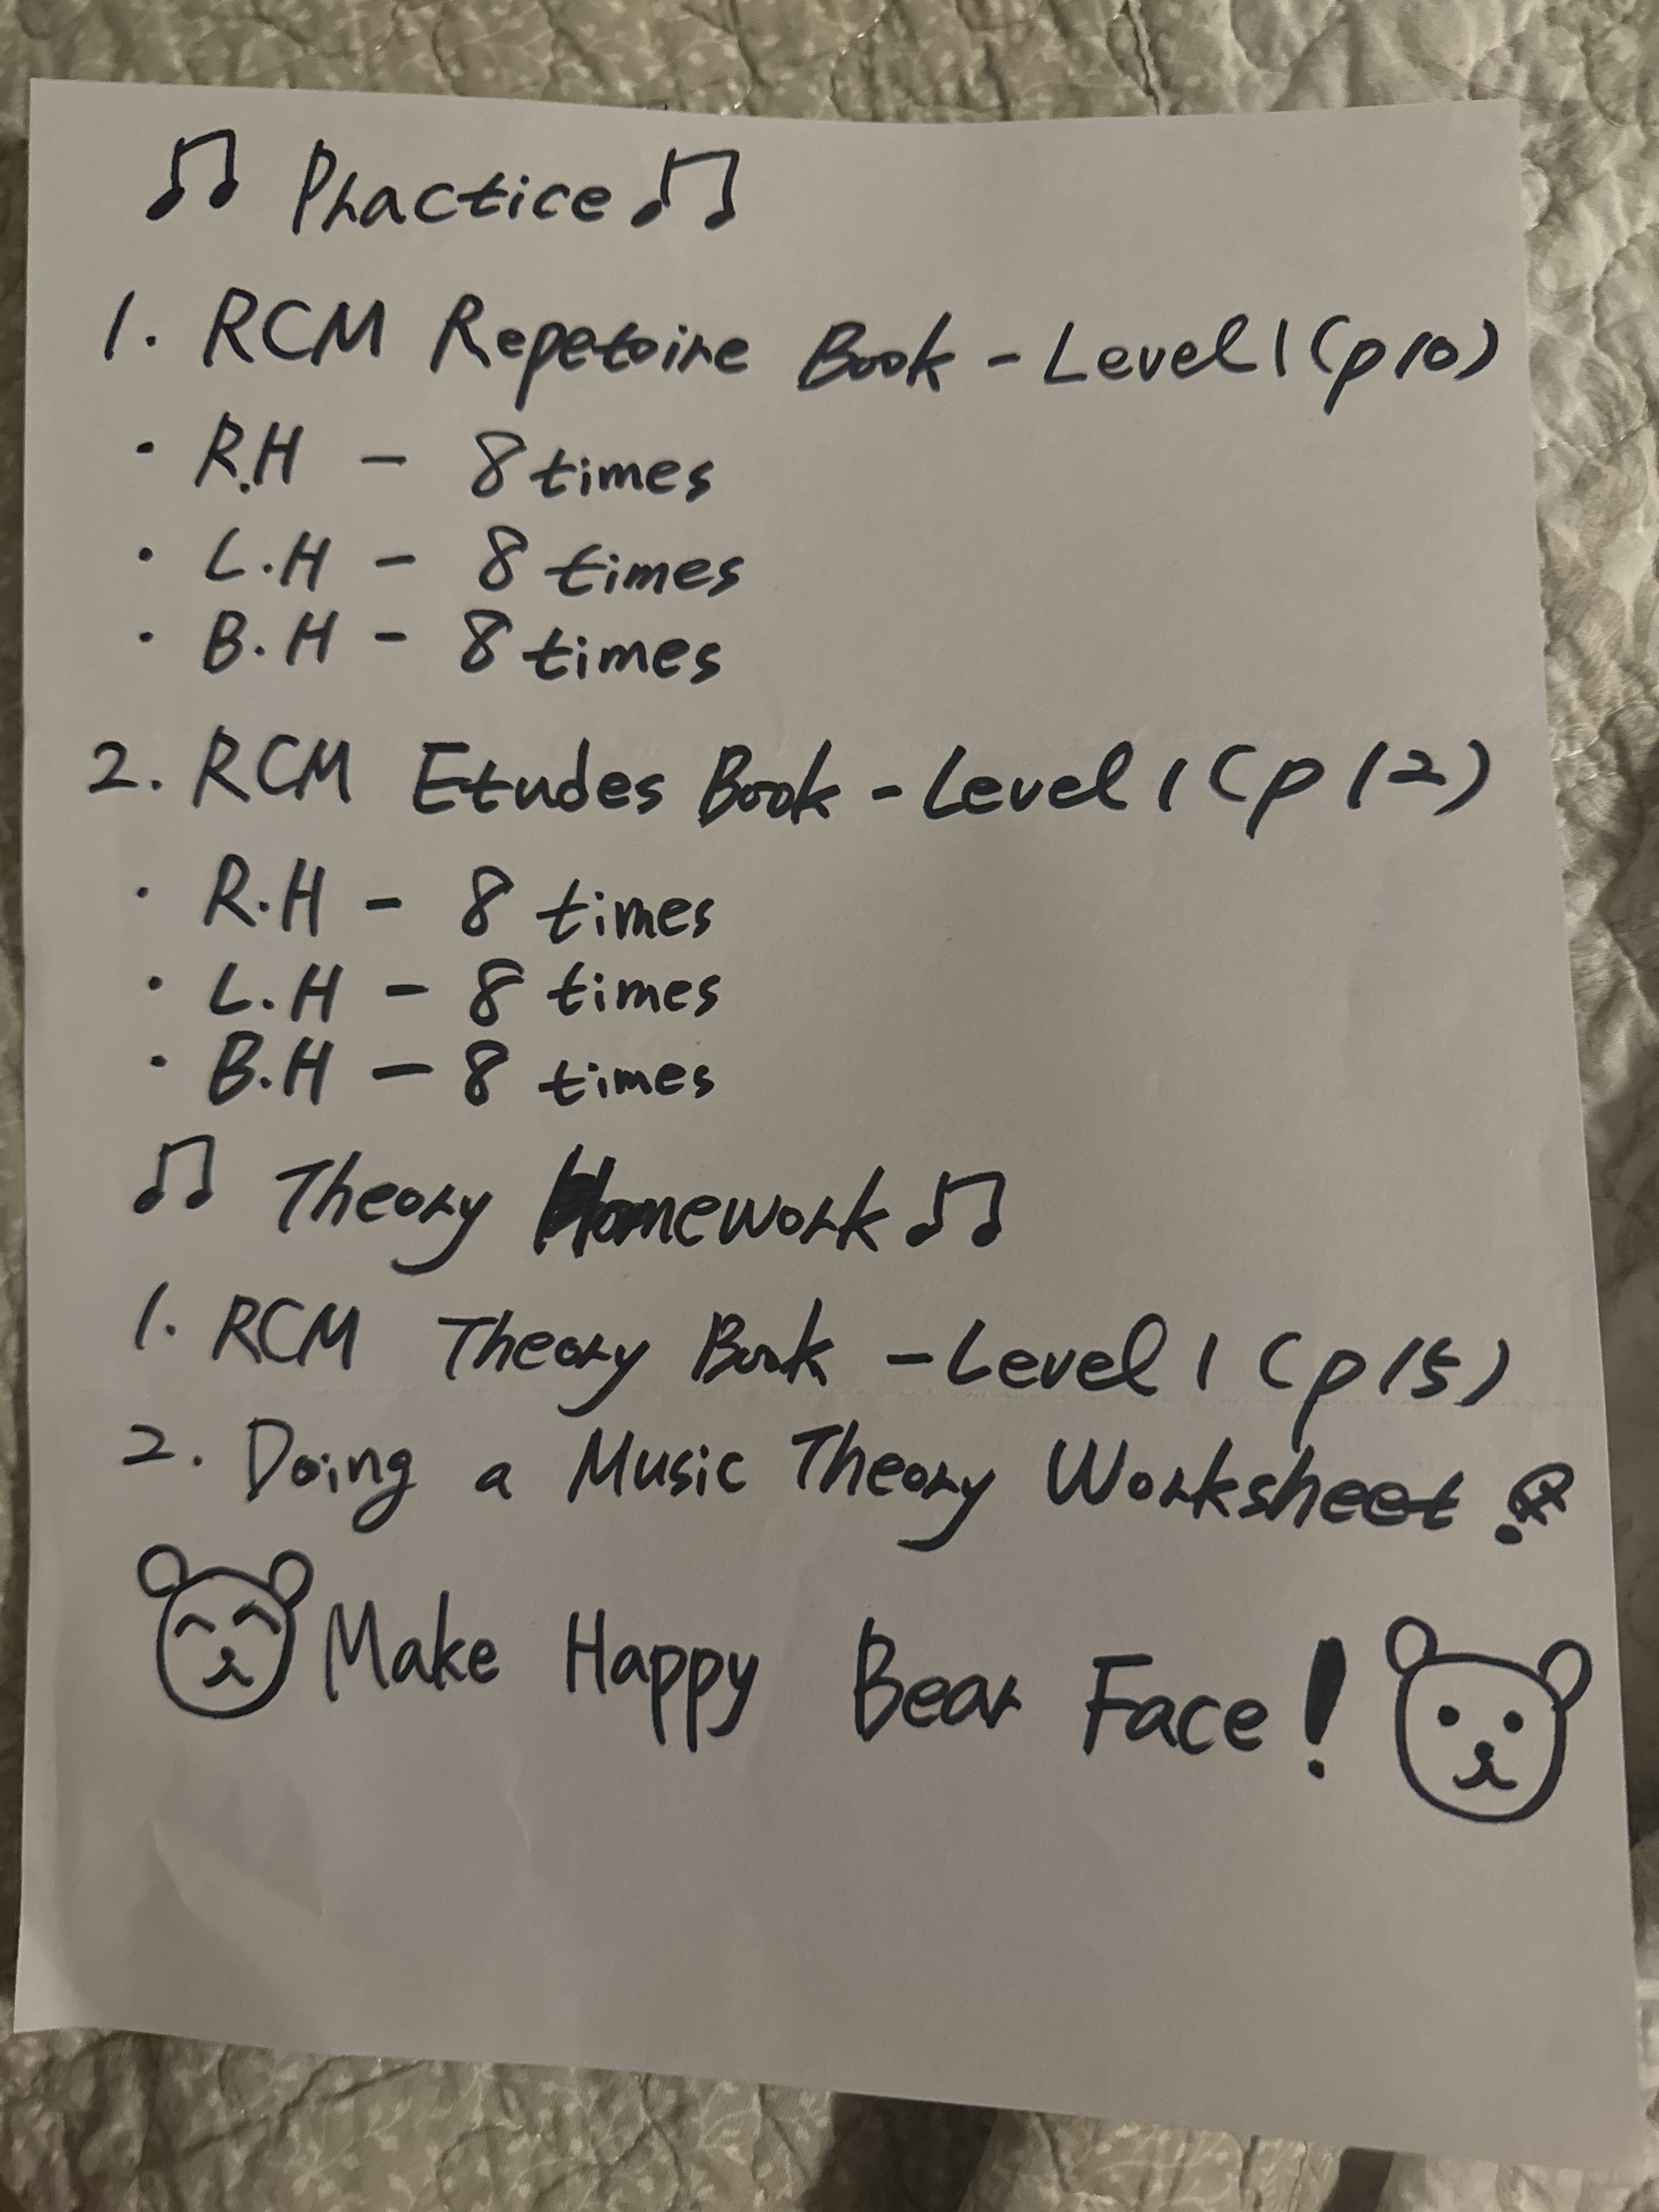 ♫ Practice ♫
1. RCM Repetoire Book - Level 1 (p10)
· R.H - 8 times
· L.H - 8 times
· B.H - 8 times
2. RCM Etudes Book - Level 1 (p 12)
· R.H - 8 times
· L.H - 8 times
· B.H - 8 times
♫ Theory Homework ♫
1. RCM Theory Book - Level 1 (p 15)
2. Doing a Music Theory Worksheet
Make Happy Bear Face!